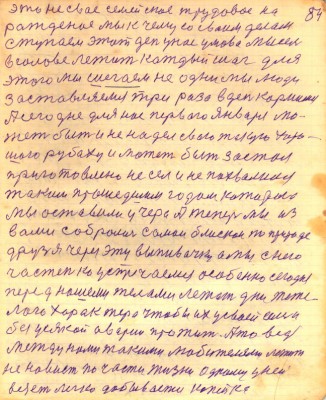 84
это не свае семейное трудовое на
рождение мы к чему со своим делом
ступаем этот ден у нас умово мысем
вголове летит каждый шаг для
этого мы шегаем не одни мы люди
заставляемся три раза вден кормими
А сегодне для нас первого Января мо-
жет быть и не надел свою такую хоро-
шого рубаху и может быт застол
приготовлено не сел и не похвалился
таким прошедшим годом которого
мы оставили учера А теперь мы из
вами собролис самои блиском по природе
друзя через эту выпивачку а мы с него
частенко устречаемся особенно сегодня
перед нашеми телами летят дни тяже-
лого характера чтобы их усвоей силы
без усякой аверии прожит. А то вед
между нами такими любителями летит
не навист по части жизни одному у ней
везет легко добывасти копейка